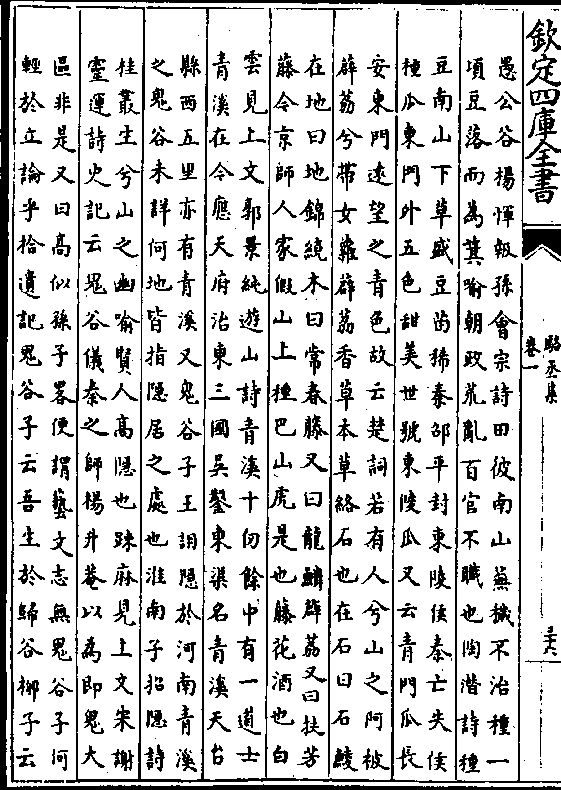 欽定四庫全書
駱丞集
卷一
三十六
愚公谷楊惲報孫會宗詩田彼南山蕪穢不治種一
頃豆落而為箕喻朝政荒亂百官不職也陶潛詩種
豆南山下草盛豆苗稀秦邵平封東陵侯秦亡失侯
種瓜東門外五色甜美世號東陵瓜又云青門瓜長
安東門遠望之青色故云楚詞若有人兮山之阿被
薜荔兮帶女蘿薜荔香草本草絡石也在石曰石鯪
在地曰地錦繞木曰常春藤又曰龍鱗薜荔又曰扶芳
藤令京師人家假山上種巴山虎是也藤花酒也白
雲見上文郭景純遊山詩青溪十仞餘中有一道士
青溪在今應天府治東三國吳鑿東渠名青溪天台
縣西五里亦有青溪又鬼谷子王詡隱於河南青溪
之鬼谷未詳何地皆指隱居之處也淮南子招隱詩
桂叢生兮山之幽喻賢人高隱也踈麻見上文宋謝
靈運詩史記云鬼谷儀秦之師楊升菴以為即鬼大
區非是又曰高似孫子畧便謂藝文志無鬼谷子何
輕於立論乎拾遺記鬼谷子云吾生於歸谷柳子云